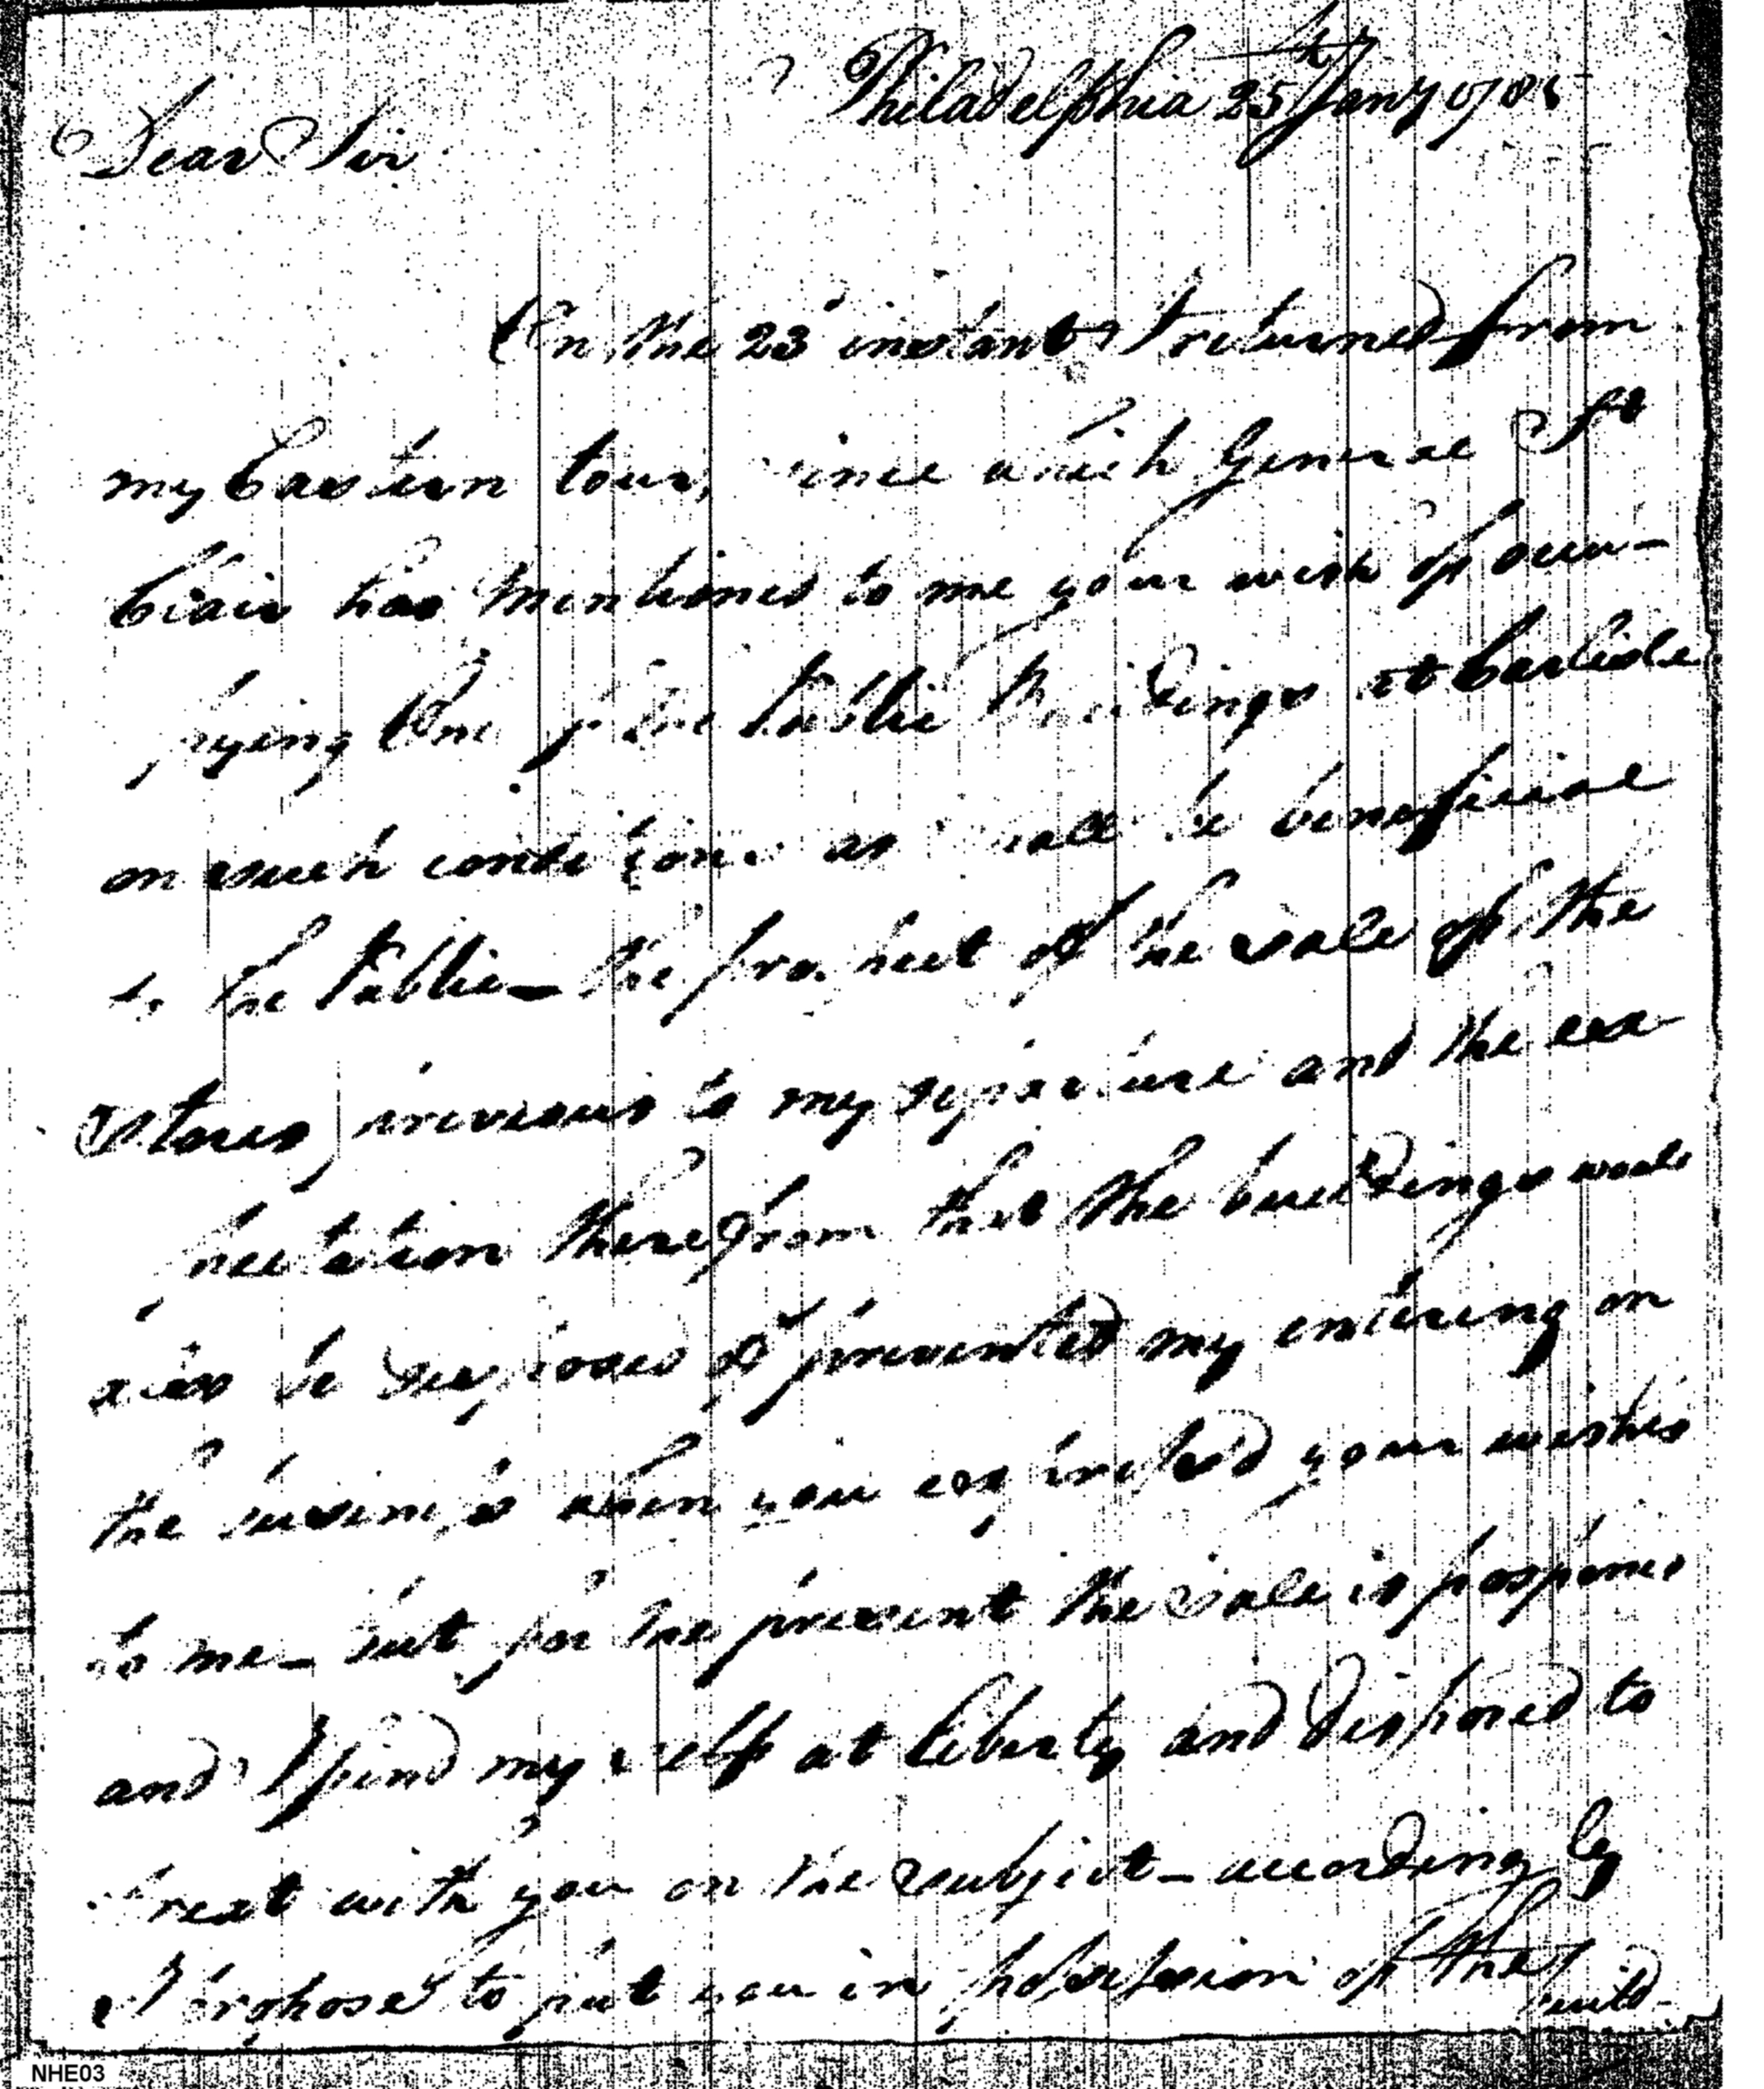 Philadelphia 25th Jany 1786
Dear Sir
On the 23d instant I returned from
my Eastern tour, since which General St
Clair has mentioned to me your wish of occu-
pying One of the Public Buildings at Carlisle
on such conditions as shall be beneficial
to the Public — the product of the sale of the
Stores previous to my departure and the ex
pectation therefrom that the buildings would
also be disposed of prevented my entering on
the business when you expressed your wishes
to me — but for the present the sale is posponed
and I find myself at liberty and disposed to
treat with you on the subject — accordingly
I propose to put you in possession of the
build-
NHE03